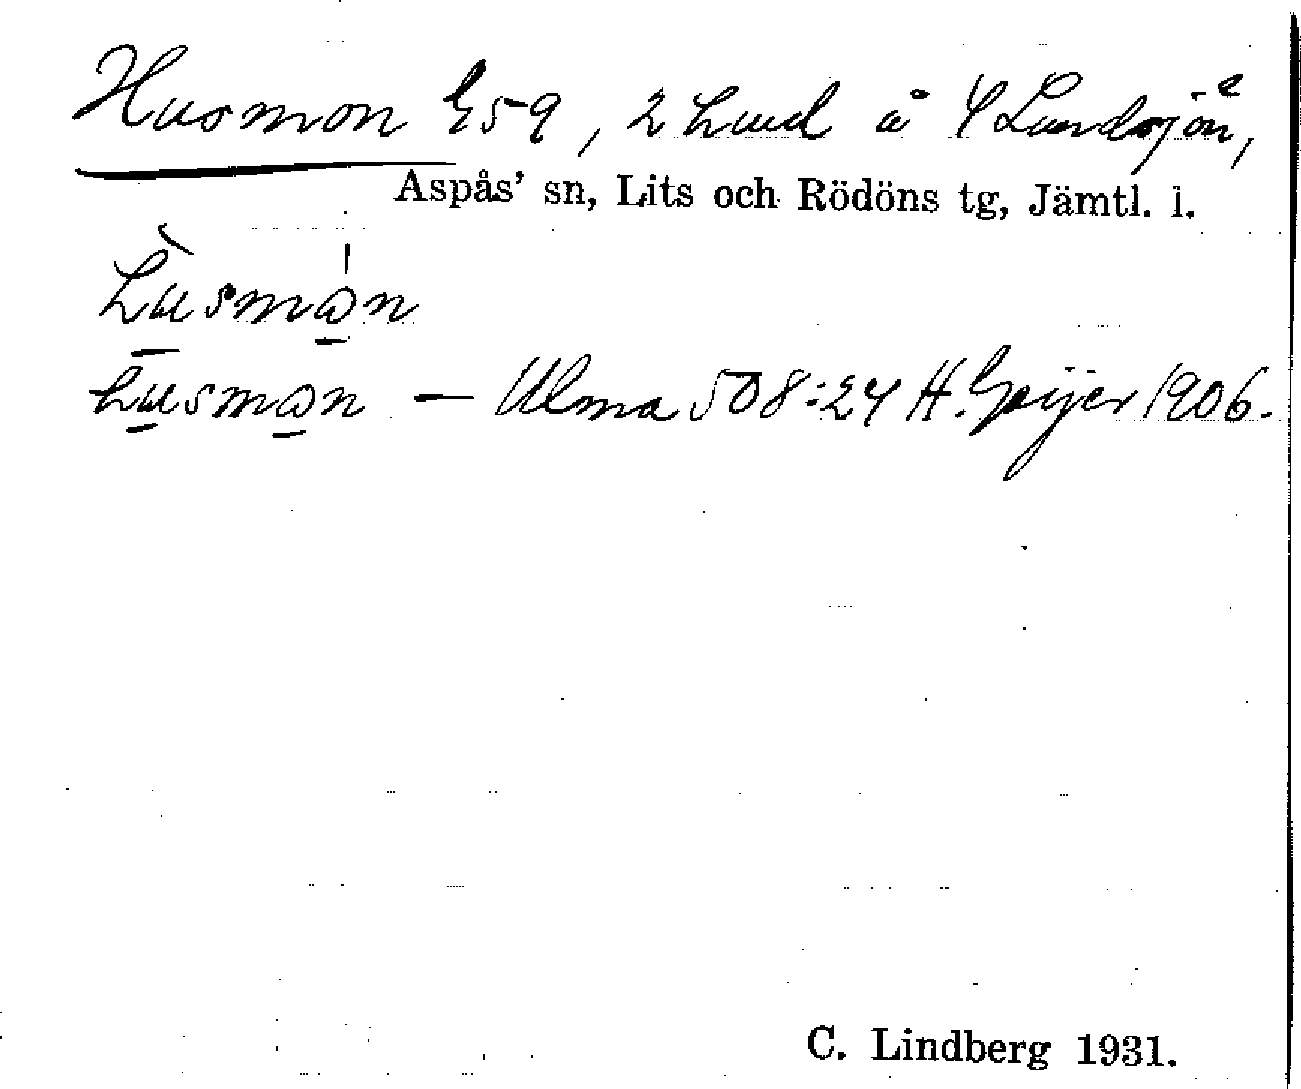 Husmon E59, 2 hud å 4 Landsjön,
Aspås' sn, Lits och Rödöns tg, Jämtl. l.
hùsmɷn
husmɷn — Ulma 508:24 H. Geijer 1906.
C. Lindberg 1931.